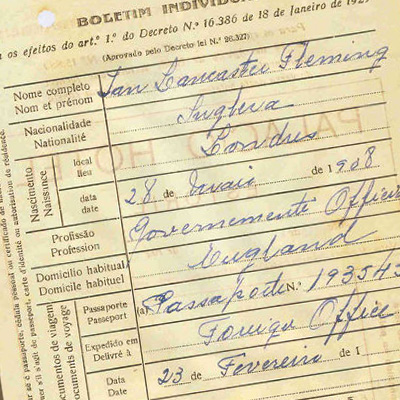 BOLETIM INDIVIDU
os efeitos do art.º 1.º do Decreto N.º 16.386 de 18 de Janeiro de 192
(Aprovado pelo Decreto lei N.º 26.327)
Nome completo Ian Lancaster Fleming
Nom et prénom
Nacionalidade Inglesa
Nationalité
Nascimento
Naissance
local Londres
lieu
data 28 de Maio de 1908
date
Profissão Governemente Officer
Profession
Domicilio habitual England
Domicile habituel
Documentos de viagem
Documents de voyage
Passaporte (a) Passaporte N.º 193545
Passeport
Expedido em Foreign Office
Delivré à
Data 23 de Fevereiro de 1
Date